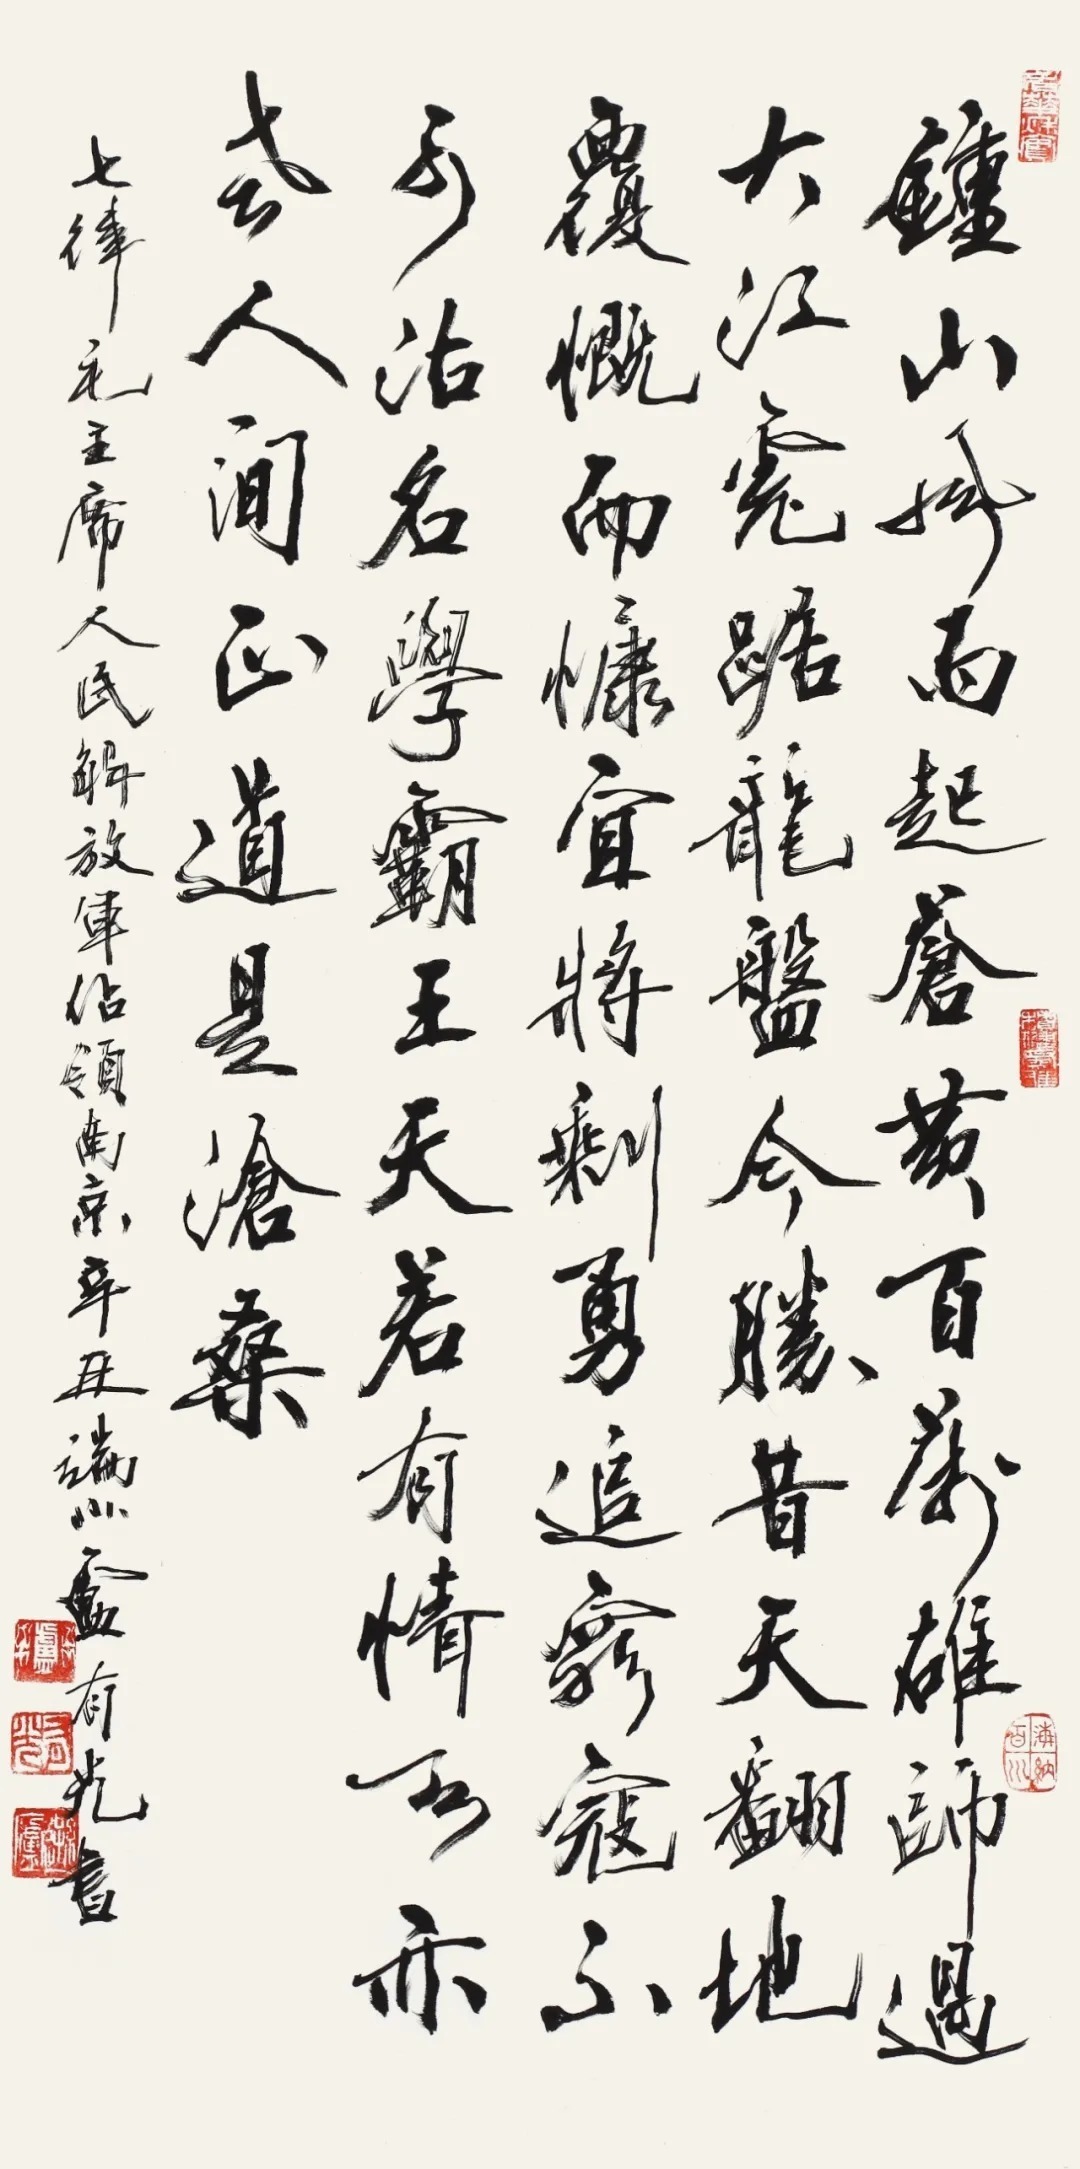 鍾山風雨起蒼黃百萬雄師過
大江虎踞龍盤今勝昔天翻地
覆慨而慷宜將剩勇追窮寇不
可沽名學霸王天若有情天亦
老人間正道是滄桑
七律毛主席人民解放軍佔領南京辛丑端州盧有光書
海納百川